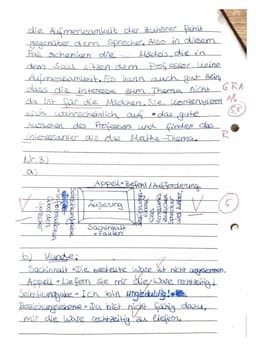 die Aufmerksamkeit der Zuhörer fehlt
gegenüber dem Sprecher. Also in diesem
Fall schenken die Mädels, die in
dem Saal sitzen dem Professor keine
Aufmerksamkeit. Es kann auch gut sein,
dass die Interesse zum Thema nicht
da ist für die Mädchen. Sie konzentrieren
sich wahrscheinlich auf das gute
Aussehen des Professors und finden das
interessanter als das Mathe-Thema.
GRA
R
Nr. 3)
a)
Appell = Befehl/Aufforderung
Äußerung
Sachinhalt
= Fakten
b) Kunde:
Sachinhalt = Die bestellte Ware ist nicht angekommen.
Appell = Liefern Sie mir die Ware rechtzeitig.
Selbstkundgabe = Ich bin ungeduldig!
Beziehungsebene = Du bist nicht fähig dazu,
mir die Ware rechtzeitig zu liefern.